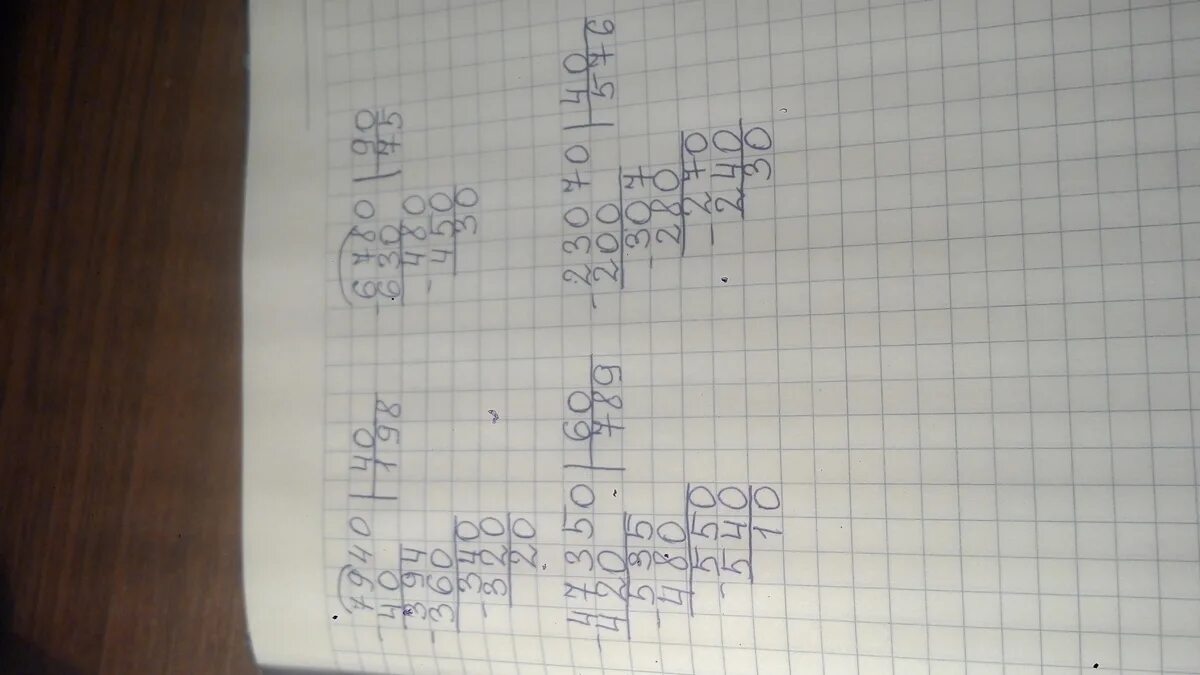 -7940 | 40
40 | 198
-394
360
-340
320
20
-6780 | 90
630 | 75
-480
450
30
-47350 | 60
420 | 789
-535
480
-550
540
10
-23070 | 40
200 | 576
-307
280
-270
240
30